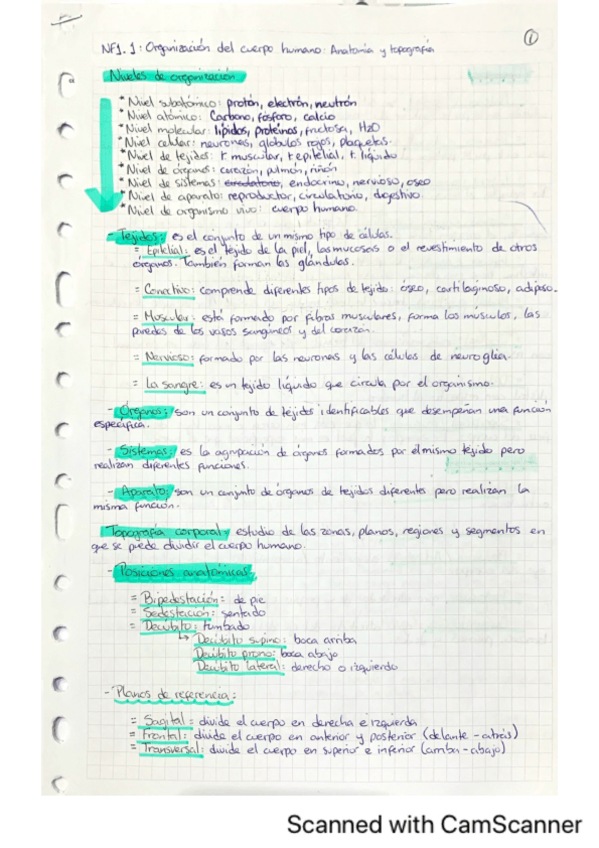 1
NF1.1: Organización del cuerpo humano: Anatomía y topografía
Niveles de organización
* Nivel subatómico: protón, electrón, neutrón
* Nivel atómico: Carbono, fósforo, calcio
* Nivel molecular: lípidos, proteínas, fructosa, H2O
* Nivel celular: neuronas, glóbulos rojos, plaquetas.
* Nivel de tejidos: t. muscular, t. epitelial, t. líquido
* Nivel de órganos: corazón, pulmón, riñón
* Nivel de sistemas: endocrino, nervioso, óseo
* Nivel de aparato: reproductor, circulatorio, digestivo.
* Nivel de organismo vivo: cuerpo humano.
- Tejidos: es el conjunto de un mismo tipo de células.
= Epitelial: es el tejido de la piel, las mucosas o el revestimiento de otros
órganos. También forman las glándulas.
= Conectivo: comprende diferentes tipos de tejido: óseo, cartilaginoso, adiposo.
= Muscular: está formado por fibras musculares, forma los músculos, las
paredes de los vasos sangíneos y del corazón.
= Nervioso: formado por las neuronas y las células de neuroglia.
= La sangre: es un tejido líquido que circula por el organismo.
- Órganos: son un conjunto de tejidos identificables que desempeñan una función
específica.
- Sistemas: es la agrupación de órganos formados por el mismo tejido pero
realizan diferentes funciones.
- Aparato: son un conjunto de órganos de tejidos diferentes pero realizan la
misma función.
Topografía corporal: estudio de las zonas, planos, regiones y segmentos en
que se puede dividir el cuerpo humano.
- Posiciones anatómicas:
= Bipedestación: de pie
= Sedestación: sentado
= Decúbito: tumbado
↳ Decúbito supino: boca arriba
Decúbito prono: boca abajo
Decúbito lateral: derecho o izquierdo
- Planos de referencia:
= Sagital: divide el cuerpo en derecha e izquierda
= Frontal: divide el cuerpo en anterior y posterior (delante - atrás)
= Transversal: divide el cuerpo en superior e inferior (arriba - abajo)
Scanned with CamScanner